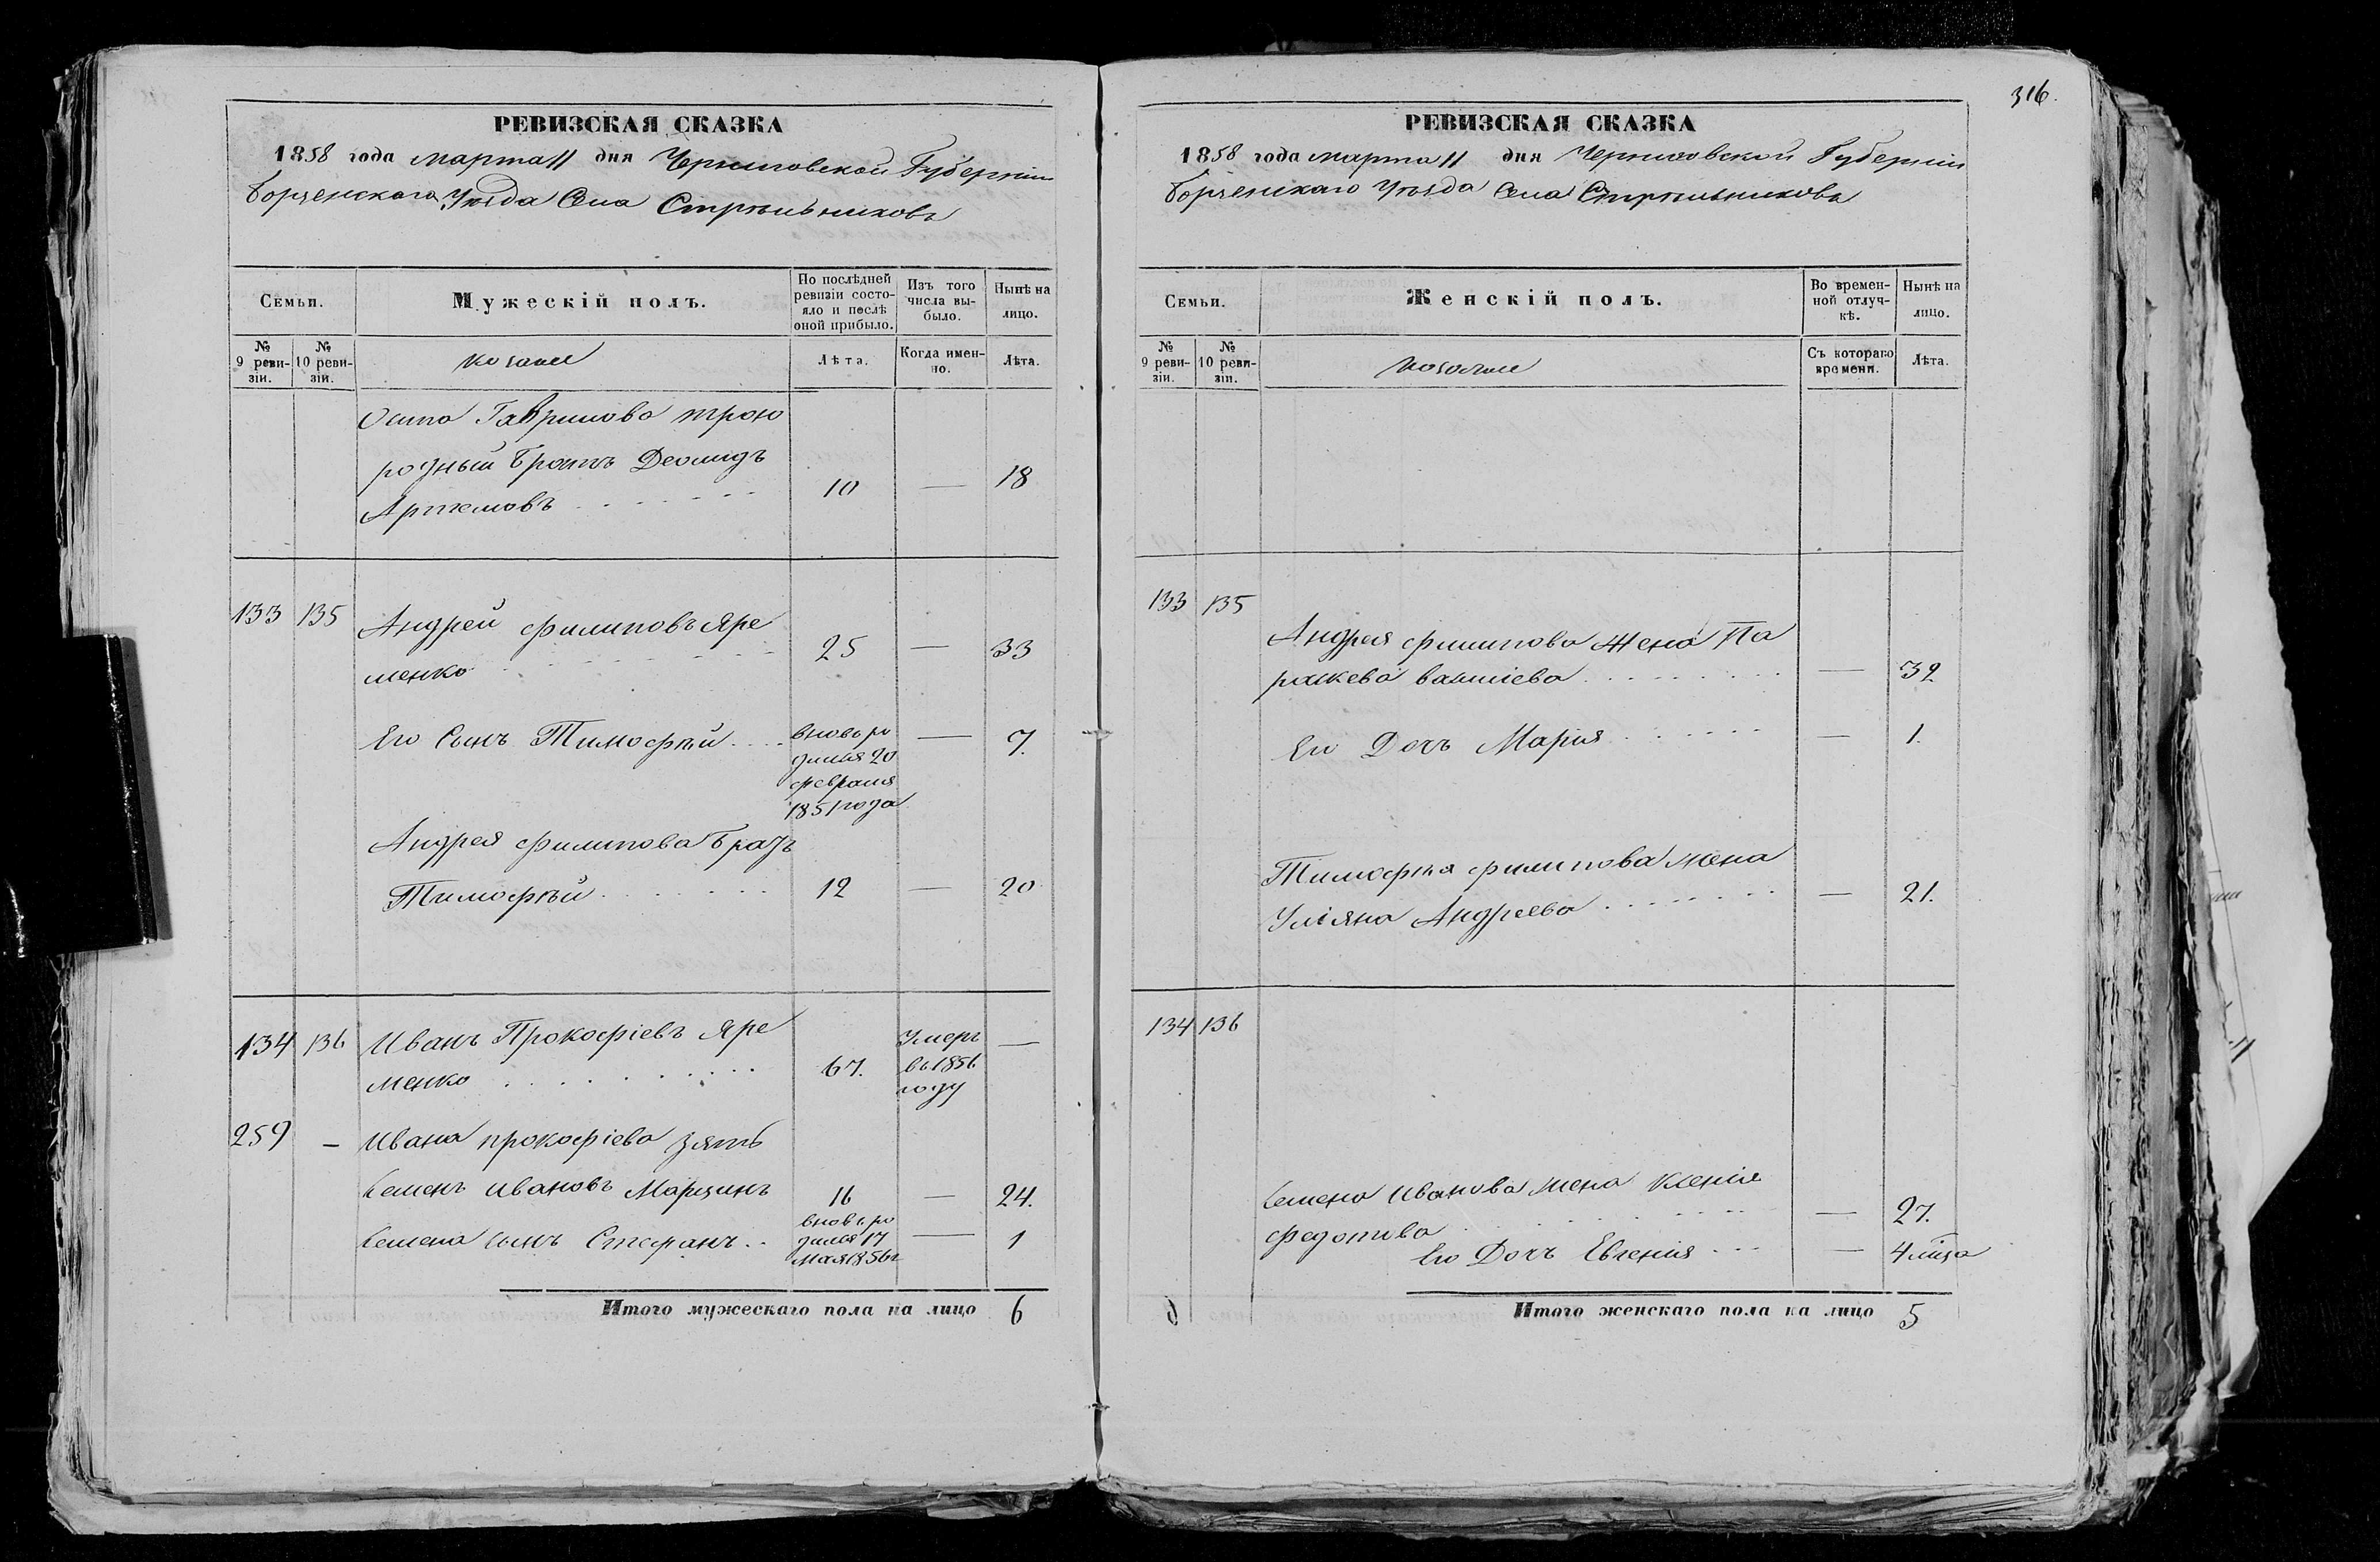 316.
РЕВИЗСКАЯ СКАЗКА
1858 года марта 11 дня Черниговской Губерніи
Борзенскаго Уѣзда Села Стрѣльниковъ
Семьи.
Мужескій полъ.
По послѣдней ревизіи состояло и послѣ оной прибыло.
Изъ того числа выбыло.
Нынѣ на лицо.
№ 9 ревизіи.
№ 10 ревизіи.
козаки
Лѣта.
Когда именно.
Лѣта.
Осипа Гаврилова трою
родный Братъ Деомидъ
Артемовъ 10 — 18
133 135 Андрей Филиповъ Яре
менко 25 — 33
Его Сынъ Тимофѣй вновь ро — 7.
дился 20
февраля
1851 года
Андрея Филипова Братъ
Тимофѣй 12 — 20
134 136 Иванъ Прокофіевъ Яре Умеръ —
менко 67. въ 1856
году
259 – Ивана прокофіева зять
Семенъ Ивановъ Марцинъ 16 — 24.
Семена сынъ Стефанъ вновь ро — 1
дился 17
мая 1856 г
Итого мужескаго пола на лицо 6
РЕВИЗСКАЯ СКАЗКА
1858 года марта 11 дня Черниговской Губерніи
Борзенскаго Уѣзда Села Стрѣльниковъ
Семьи.
Женскій полъ.
Во временной отлучкѣ.
Нынѣ на лицо.
№ 9 ревизіи.
№ 10 ревизіи.
Съ котораго времени.
Лѣта.
133 135
Андрея Филипова Жена Па
раскева Василіева — 32
Его Дочь Марія — 1.
Тимофѣя Филипова жена
Уліяна Андреева — 21.
134 136
Семена Иванова жена Ксенія
Федотова — 27.
Его Дочь Евгенія — 4 мѣсяца
Итого женскаго пола на лицо 5